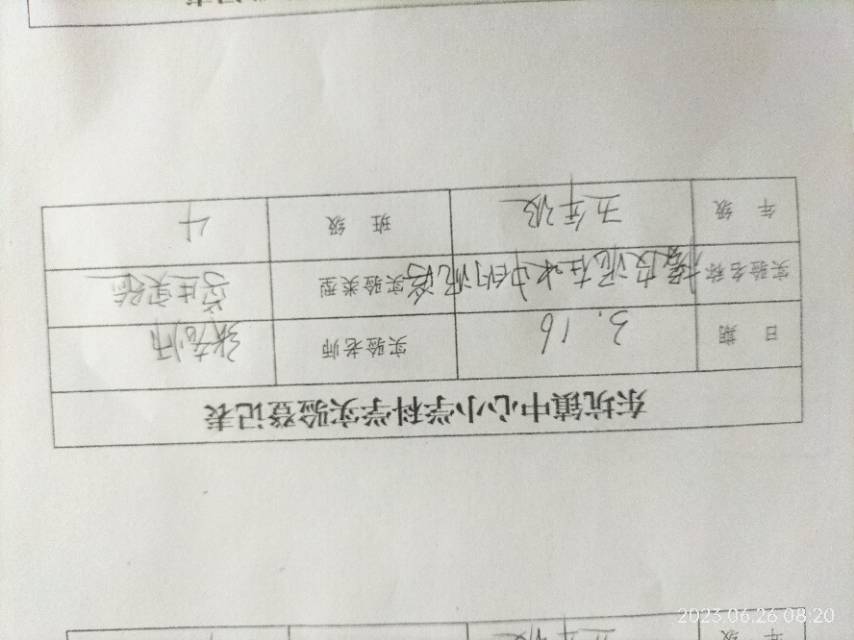 东坑镇中心小学科学实验登记表
日 期 3.16 实验老师 张老师
实验名称 橡皮泥在水中的沉浮 实验类型 学生实验
年 级 五年级 班 级 4
2023.06.26 08:20